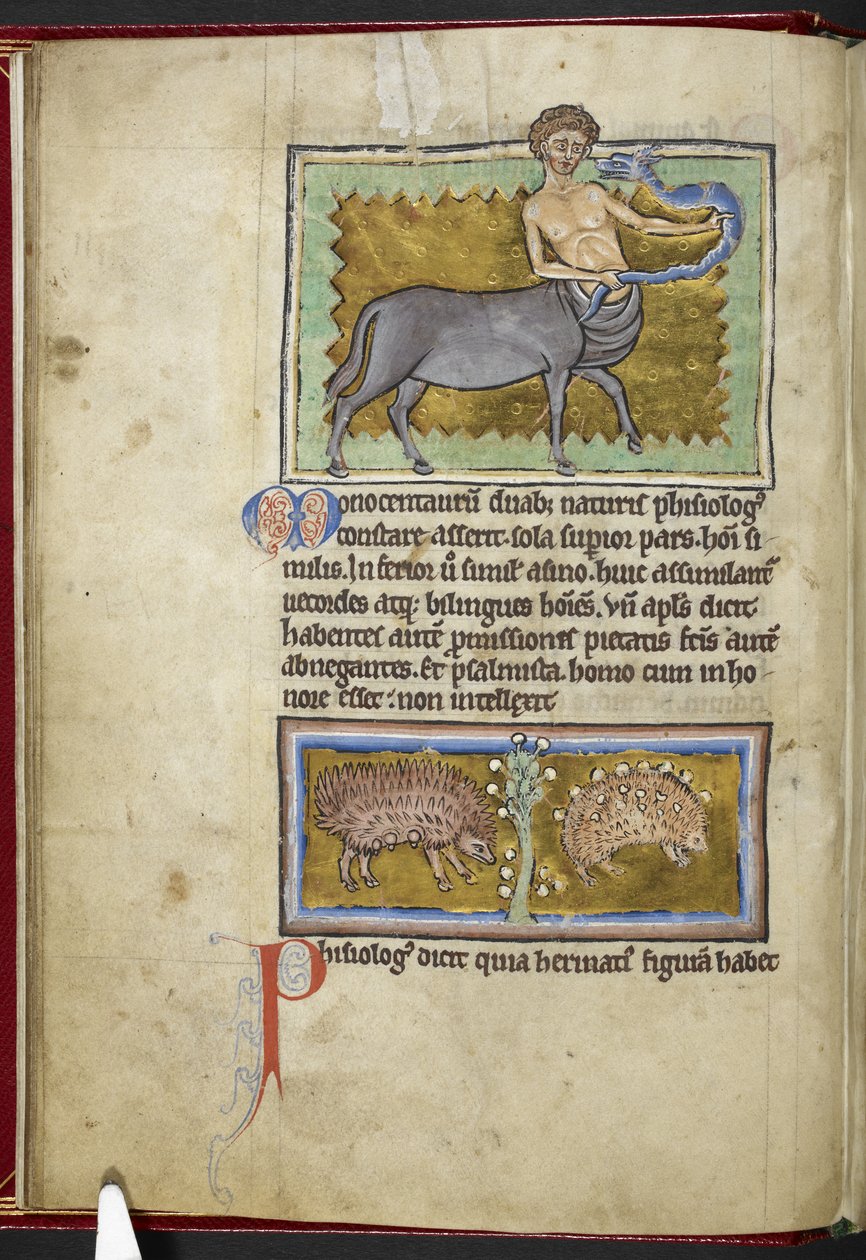 Monocentaurū duab; naturis phisiolog⁹
constare asserit. sola suꝑior pars. hoī si
milis. Inferior u͛o simil' asino. huic assimilant̃
uecordes atq; bilingues hoīes. vñ apl's dicit
habentes autē ꝓmissiones pietatis fc̄is autē
abnegantes. Et psalmista. homo cum in ho
nore esset: non intellexit
Phisiolog⁹ dicit quia herinati⁹ figurā habet